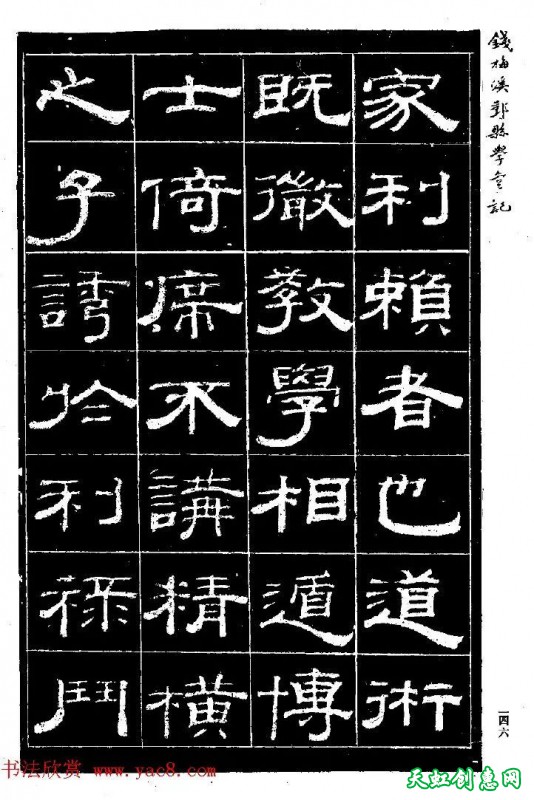 錢梅溪鄞縣學宮記
家利賴者也道術
既微教學相遁博
士倚席不講精橫
之子誘於利祿鬥
一四六
书法欣赏 www.yac8.com
天虹创意网